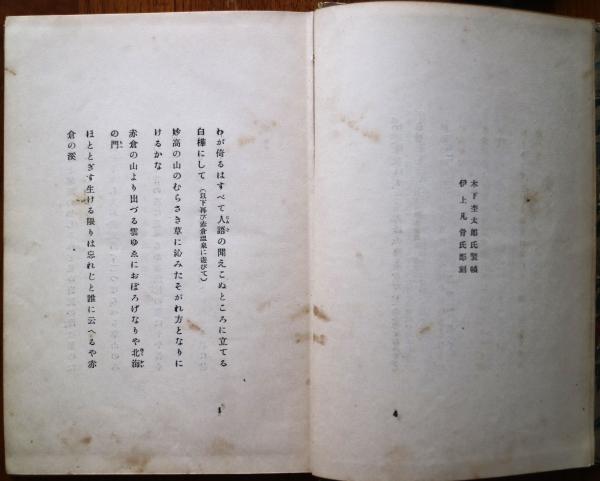 木下杢太郎氏装幀
伊上凡骨氏彫刻
わが倚るはすべて人語の聞えこぬところに立てる
白樺にして（以下再び赤倉温泉に遊びて）
妙高の山のむらさき草に沁みたそがれ方となりに
けるかな
赤倉の山より出づる雲ゆゑにおぼろげなりや北海
の門
ほととぎす生ける限りは忘れじと誰に云へるや赤
倉の渓
1